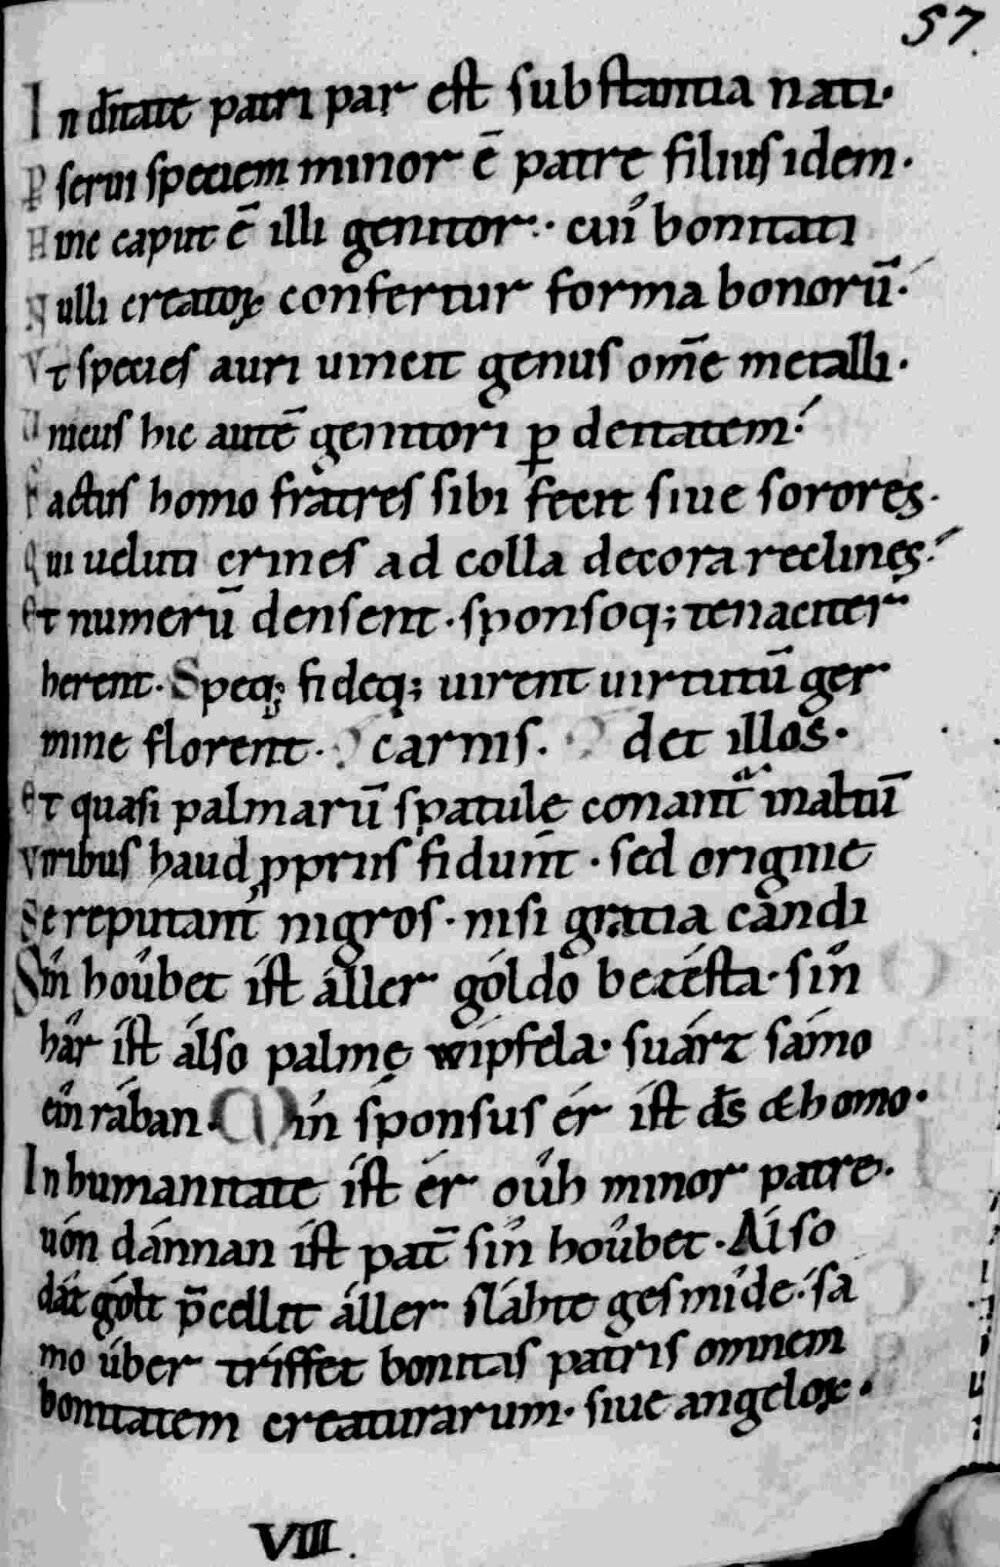 57.
In dītate patri par est substantia nati.
P serui speciem minor ē patre filius idem.
Hinc caput ē illi genitor. cui bonitati
Nulli creatoꝝ confertur forma bonorū.
Vt species auri uincit genus om̄e metalli.
Vnicus hic autē genitori ꝑ deitatem.
Factus homo fratres sibi fecit siue sorores.
Qui uelut crines ad colla decora reclines.
Et numerū densent. sponsoq; tenaciter
herent. Speq; fideq; uirent uirtutū ger
mine florent. carnis. det illos.
Et quasi palmarū spatule conant̄ in altū
Viribus haud ꝓpriis fidunt̄. sed origine
Se reputant̄ nigros. nisi gratia candi
Sín hoûbet ist áller góldo bezésta. sîn
hâr íst álso palmę wípfela. suárz sámo
eîn rában. Mín sponsus ér íst d̄s & homo.
In humanitate íst ér oûh minor patre.
uón dánnan íst pat̄ sîn hoûbet. Also
dát gólt p̄cellit áller sláhte gesmîde. sa
mo úber tríffet bonitas patris omnem
bonitatem creaturarum. siue angeloꝝ.
VIII.